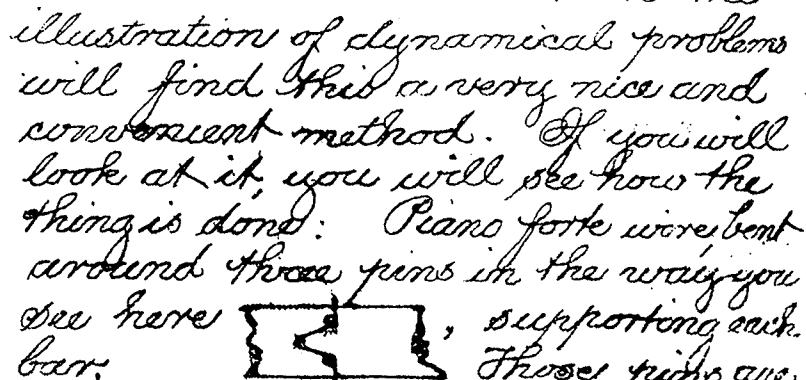 the
illustration of dynamical problems
will find this a very nice and
convenient method. If you will
look at it, you will see how the
thing is done: Piano forte wire, bent
around three pins in the way you
see here , supporting each
bar; Those pins are